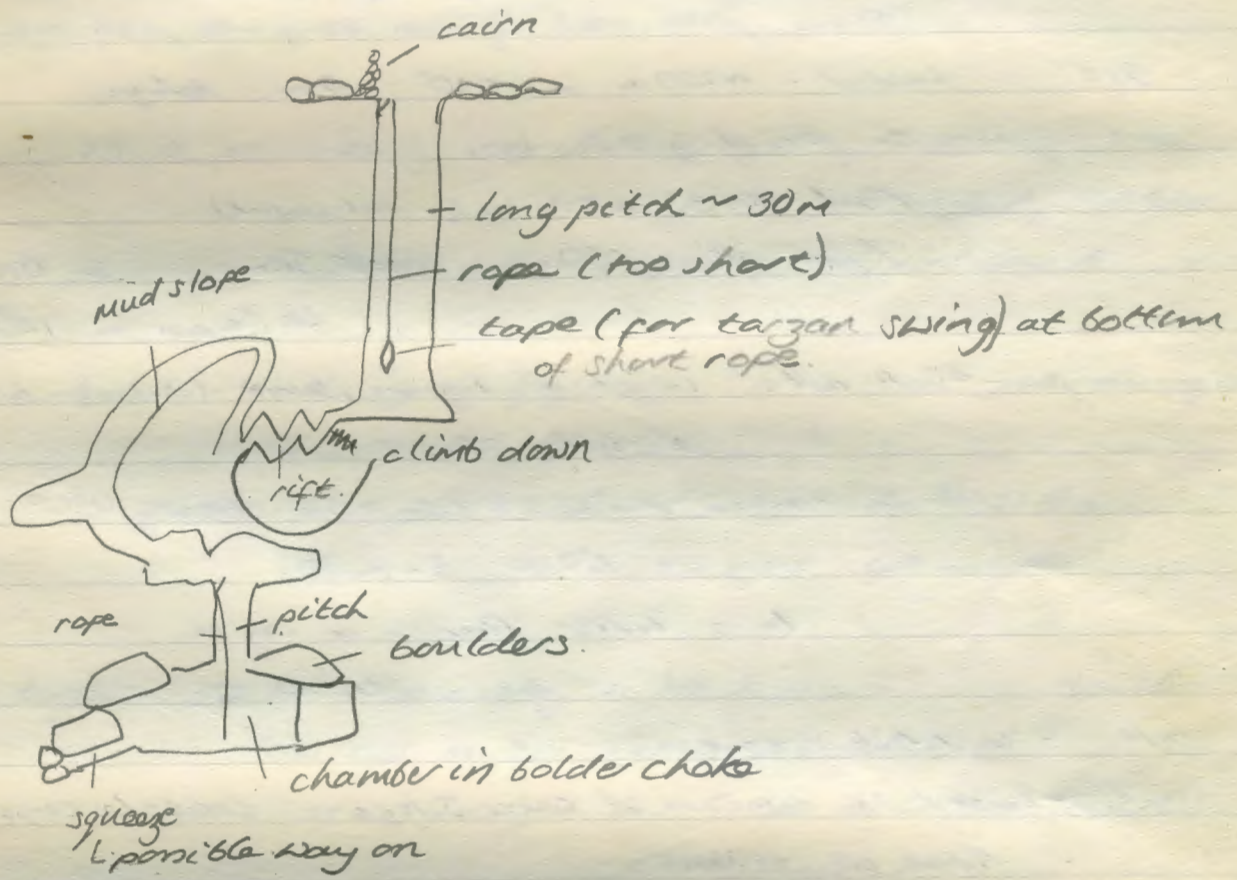 cairn
long pitch ~ 30m
rope (too short)
mud slope
tape (for tarzan swing) at bottom
of short rope.
climb down
rift.
rope
pitch
boulders.
chamber in bolder choke
squeeze
possible way on